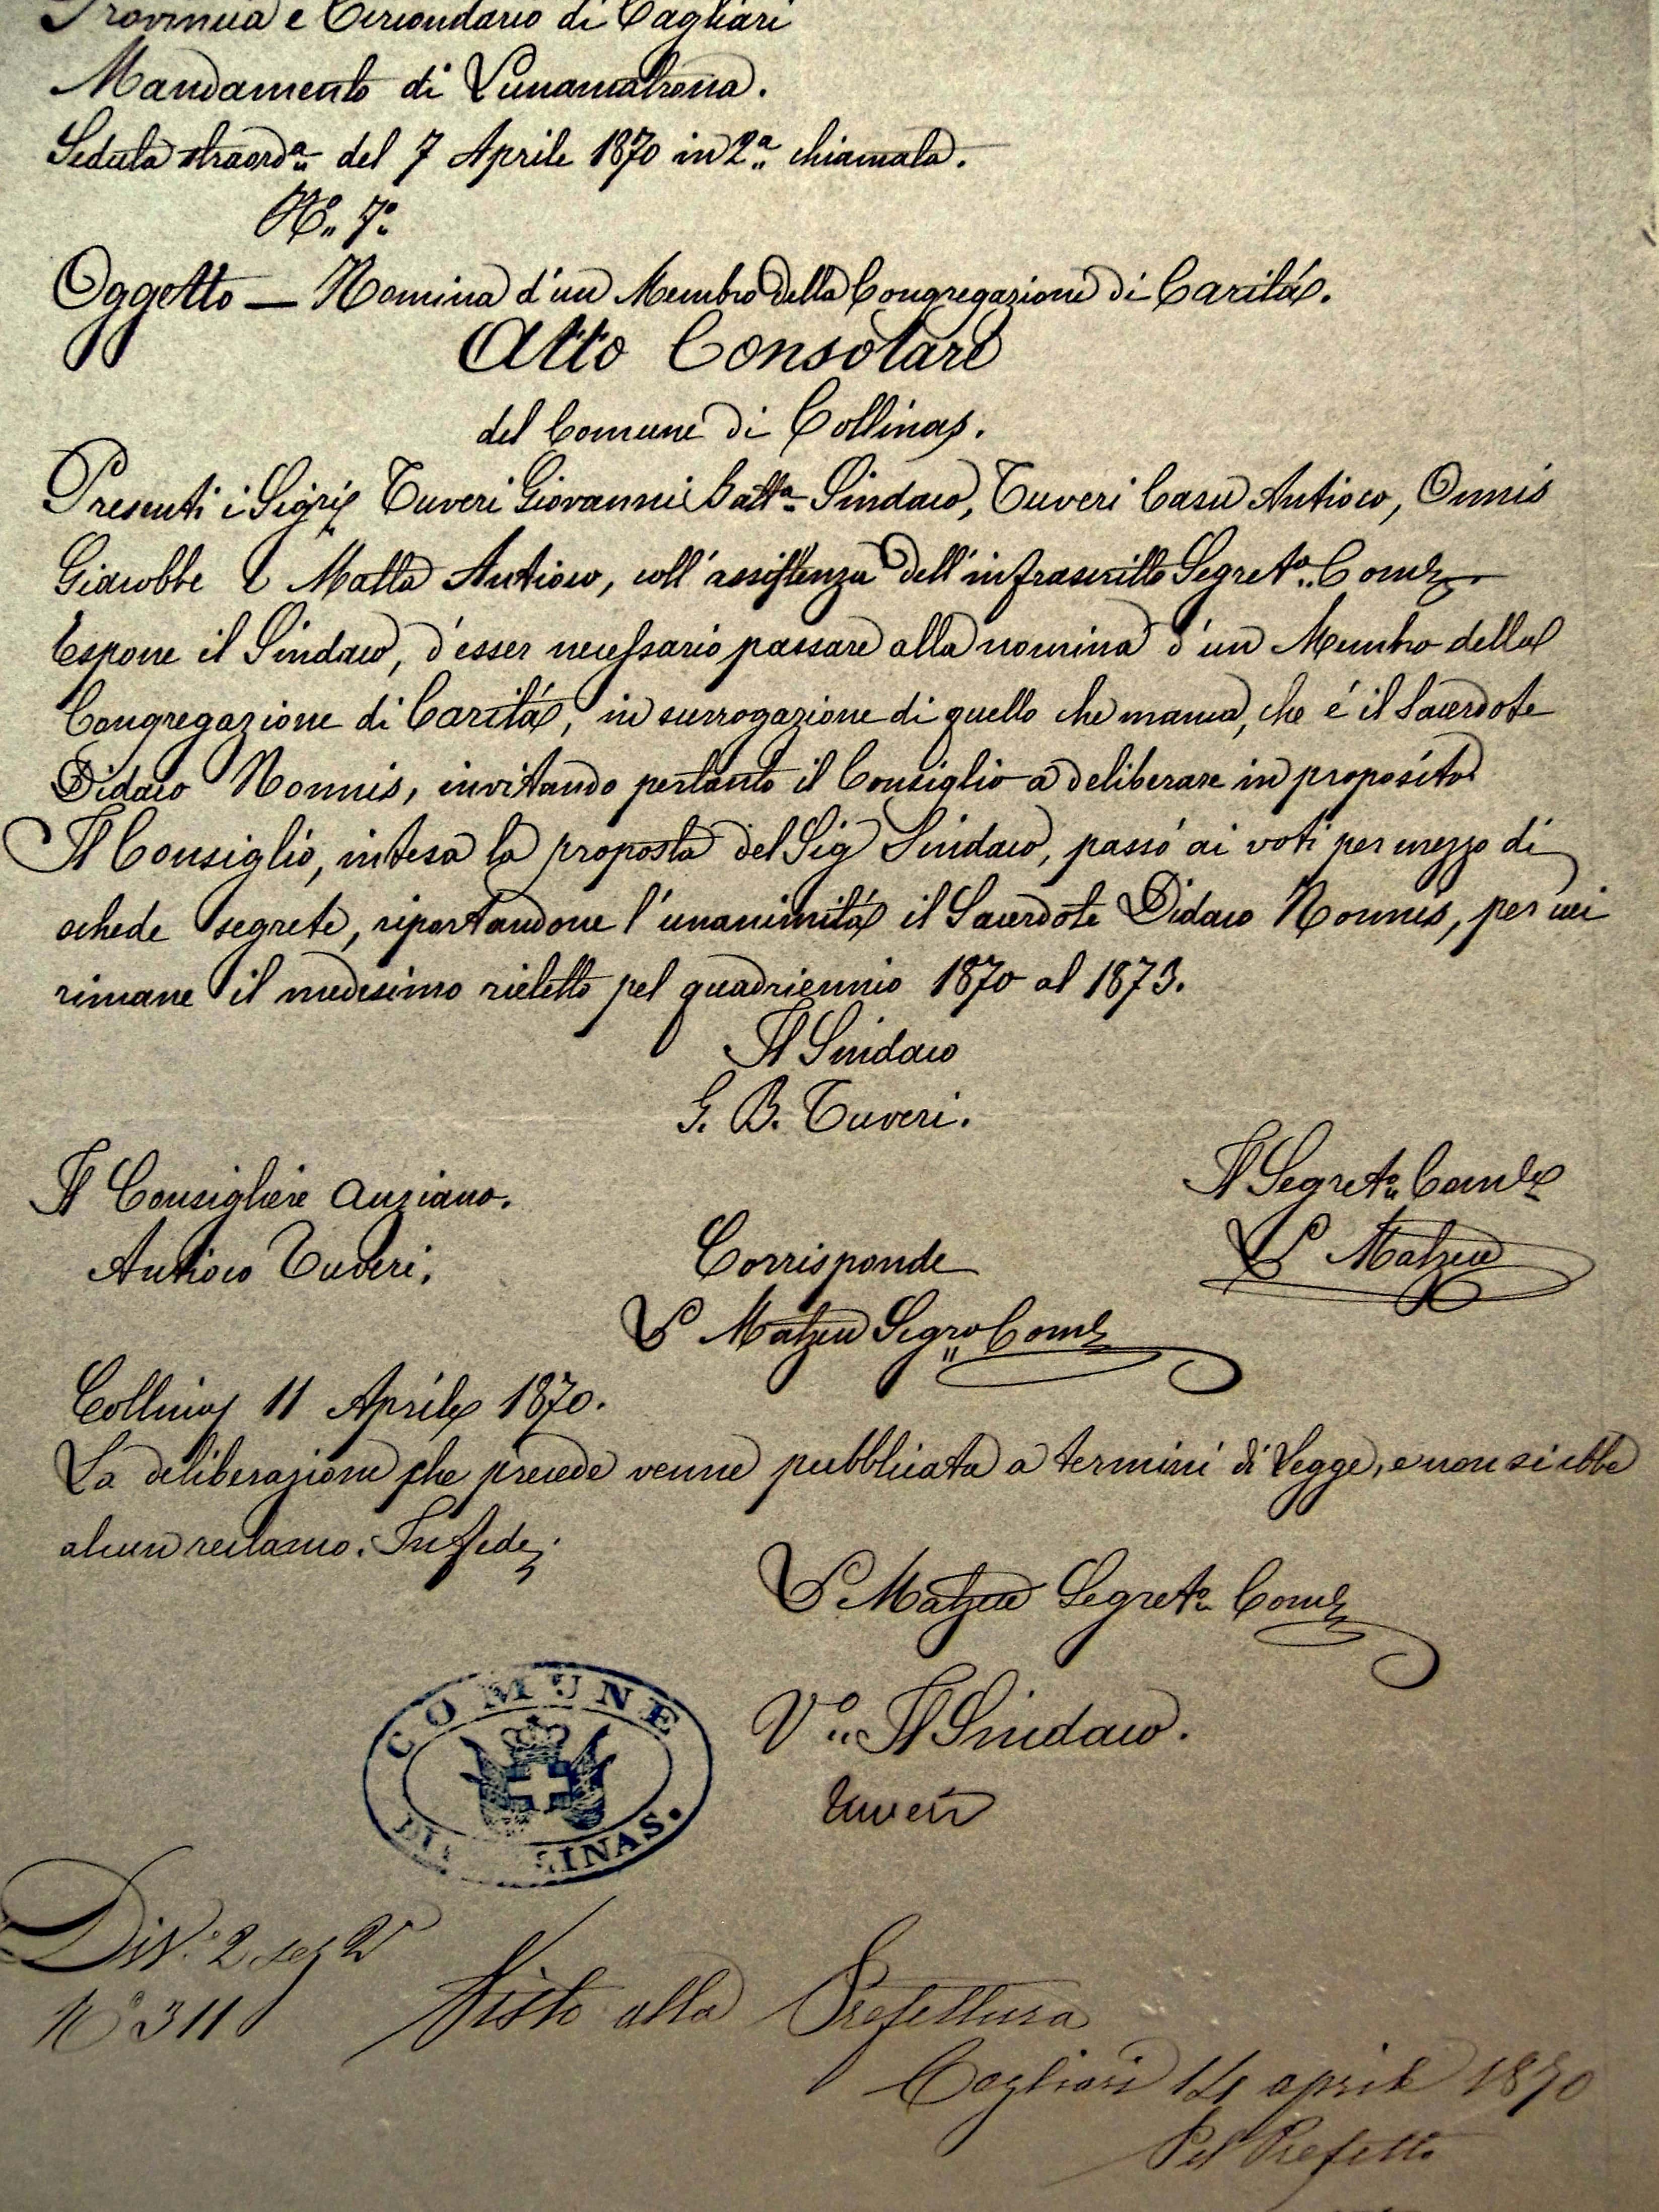 Provincia e Circondario di Cagliari
Mandamento di Lunamatrona.
Seduta straord.a del 7 Aprile 1870 in 2.a chiamata.
N.o 7.o
Oggetto — Nomina d'un Membro della Congregazione di Caritá.
Atto Consolare
del Comune di Collinas.
Presenti i Sigri Tuveri Giovanni Batt.a Sindaco, Tuveri Casu Antioco, Onnis
Giacobbe e Matta Antioco, coll'assistenza dell'infrascritto Segret.o Com.le
Espone il Sindaco, d'esser necessario passare alla nomina d'un Membro della
Congregazione di Caritá, in surrogazione di quello che manca, che é il Sacerdote
Didaco Nonnis, invitando pertanto il Consiglio a deliberare in proposito
Il Consiglio, intesa la proposta del Sig Sindaco, passó ai voti per mezzo di
schede segrete, riportandone l'unanimitá il Sacerdote Didaco Nonnis, per cui
rimane il medesimo rieletto pel quadriennio 1870 al 1873.
Il Sindaco
G. B. Tuveri.
Il Consigliere anziano.
Antioco Tuveri.
Il Segret.o Com.le
L Matzeu
Corrisponde
L Matzeu Segro Com.le
Collinas 11 Aprile 1870.
La deliberazione che precede venne pubblicata a termini di Legge, e non si ebbe
alcun reclamo. In fede;
L Matzeu Segret.o Com.le
COMUNE
DI INAS.
V.o Il Sindaco.
Tuveri
Div. 2 sez 2
N.o 311
Visto alla Prefettura
Cagliari 14 aprile 1870
Pel Prefetto